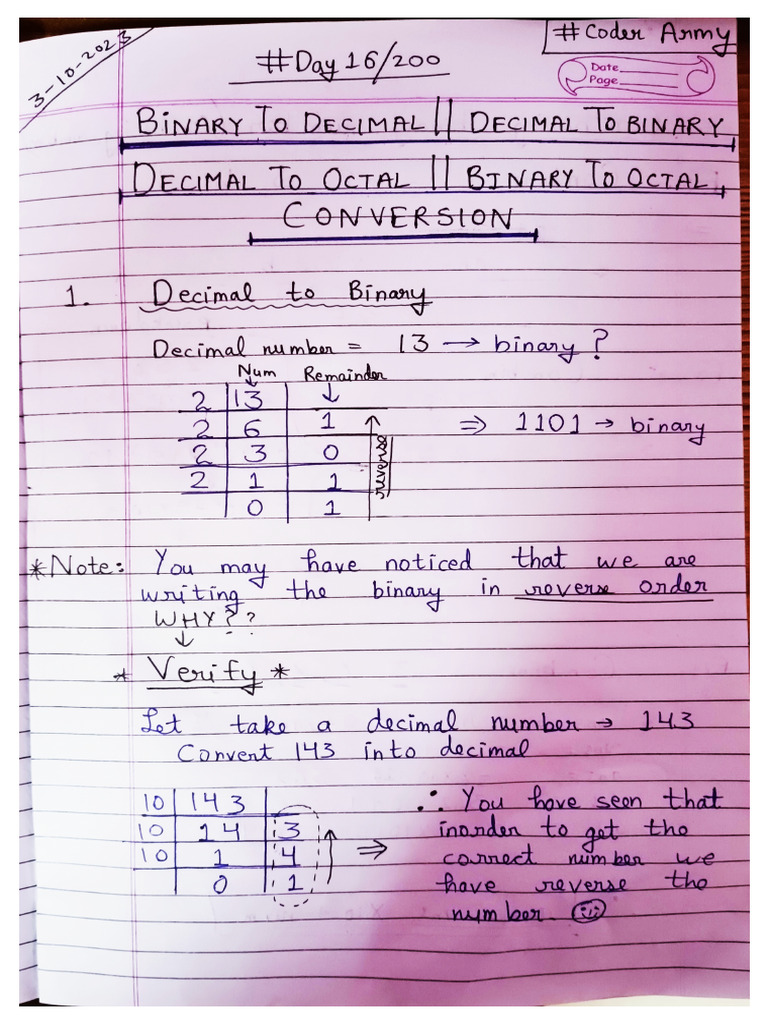 3-10-2023
#Day 16/200
#Coder Army
Date
Page
BINARY TO DECIMAL || DECIMAL TO BINARY
DECIMAL TO OCTAL || BINARY TO OCTAL
CONVERSION
1. Decimal to Binary
Decimal number = 13 → binary?
Num Remainder
2 13 ↓
2 6 1
2 3 0
2 1 1
0 1
reverse
⇒ 1101 → binary
*Note: You may have noticed that we are
writing the binary in reverse order
WHY??
↓
* Verify *
Let take a decimal number → 143
Convert 143 into decimal
10 143
10 14 3
10 1 4
0 1
⇒
∴ You have seen that
inorder to get the
correct number we
have reverse the
number